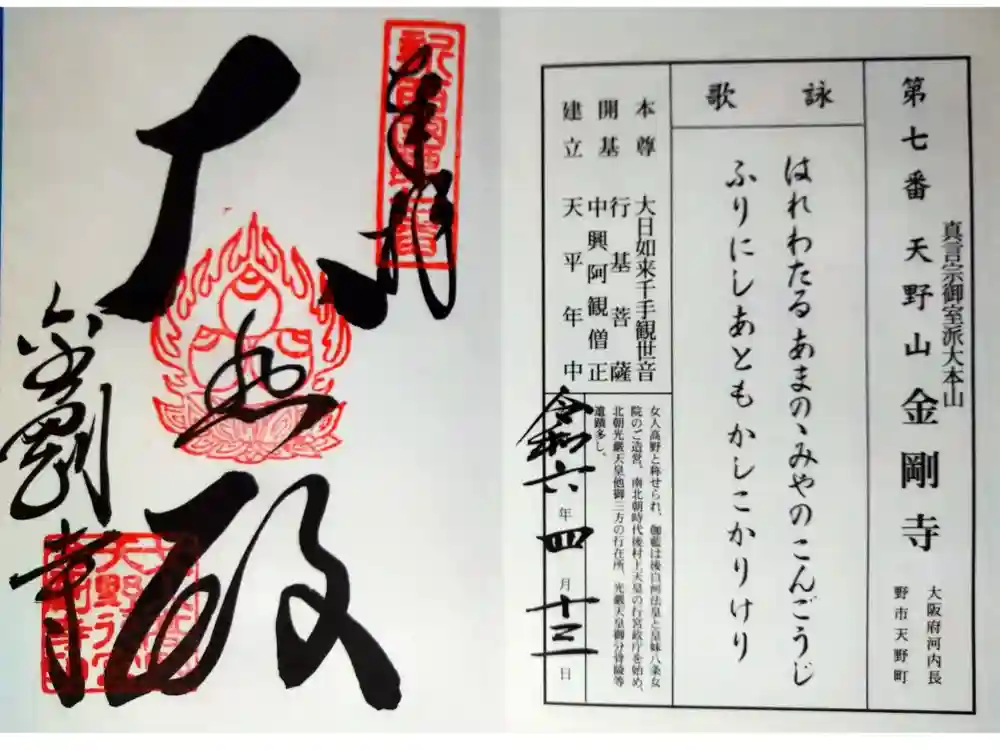 真言宗御室派大本山
第七番 天野山 金剛寺
大阪府河内長
野市天野町
詠歌
はれわたるあまのゝみやのこんごうじ
ふりにしあともかしこかりけり
本尊 大日如来千手観世音
開基 行基菩薩
中興阿観僧正
建立 天平年中
女人高野と称せられ、伽藍は後白河法皇と皇妹八条女
院のご造営。南北朝時代後村上天皇の行宮政庁を始め、
北朝光厳天皇他御三方の行在所、光厳天皇御分骨陵等
遺蹟多し。
令和六年四月十三日
奉拝
大悲殿
金剛寺